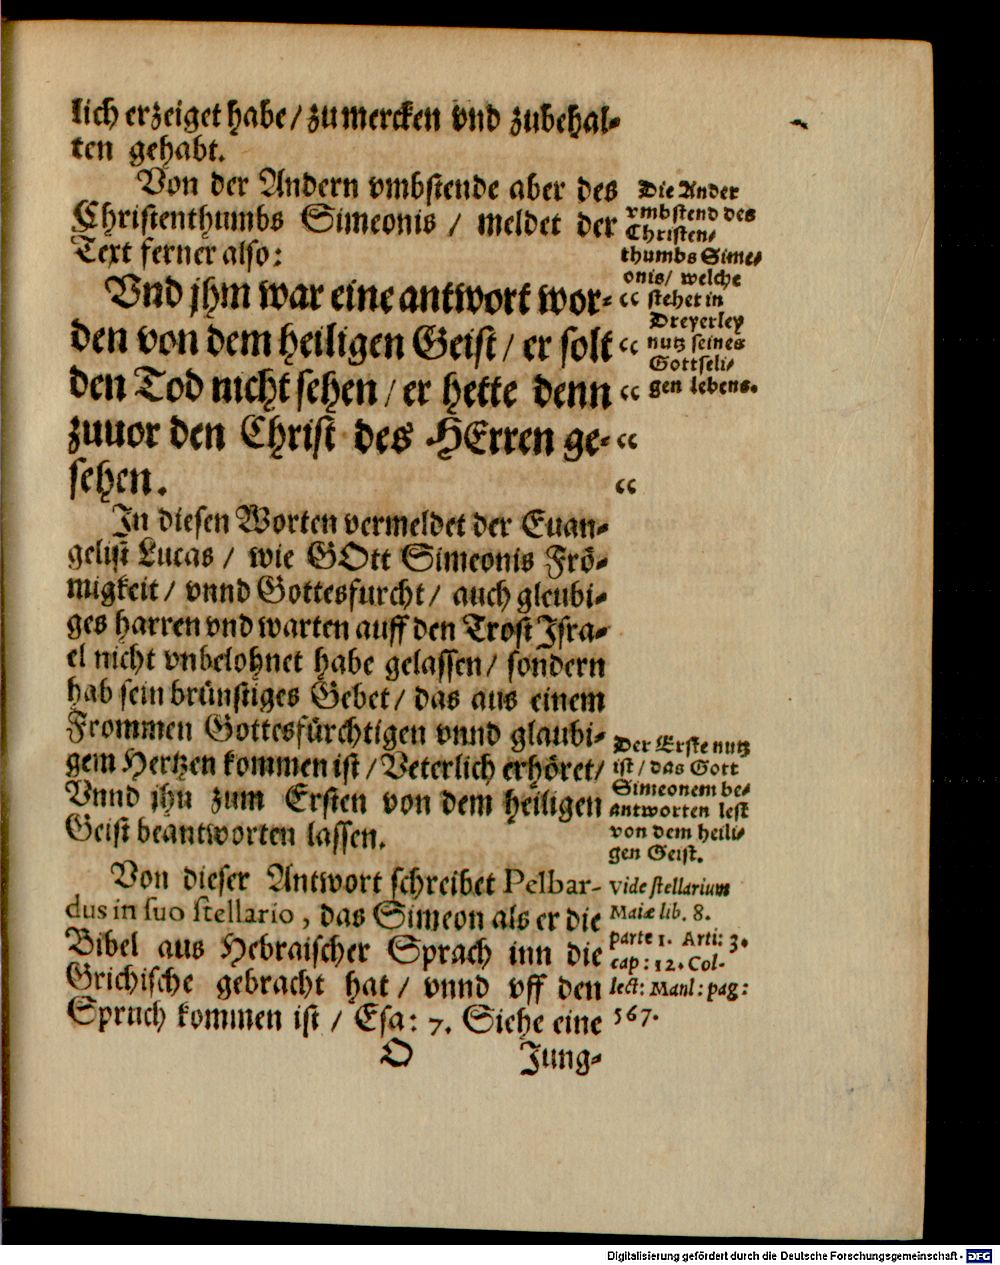 lich erzeiget habe / zu mercken vnd zubehal-
ten gehabt.
Von der Andern vmbstende aber des
Christenthumbs Simeonis / meldet der
Text ferner also:
Vnd jhm war eine antwort wor-
den von dem heiligen Geist / er solt
den Tod nicht sehen / er hette denn
zuuor den Christ des HErren ge-
sehen.
In diesen Worten vermeldet der Euan-
gelist Lucas / wie GOtt Simeonis Frö-
migkeit / vnnd Gottesfurcht / auch gleubi-
ges harren vnd warten auff den Trost Isra-
el nicht vnbelohnet habe gelassen / sondern
hab sein brünstiges Gebet / das aus einem
Frommen Gottesfürchtigen vnnd glaubi-
gem Hertzen kommen ist / Veterlich erhöret /
Vnnd jhn zum Ersten von dem heiligen
Geist beantworten lassen.
Von dieser Antwort schreibet Pelbar-
dus in suo stellario, das Simeon als er die
Bibel aus Hebraischer Sprach inn die
Grichische gebracht hat / vnnd vff den
Spruch kommen ist / Esa: 7. Siehe eine
O Jung-
Die Ander
vmbstend des
Christen-
thumbs Sime-
onis / welche
“ stehet in
Dreyerley
“ nutz seines
Gottseli-
“ gen lebens.
“
“
Der Erste nutz
ist / das Gott
Simeonem be-
antworten lest
von dem heili-
gen Geist.
vide stellarium
Mariæ lib. 8.
parte 1. Arti: 3.
cap: 12. Col-
lect: Manl: pag:
567.
Digitalisierung gefördert durch die Deutsche Forschungsgemeinschaft - DFG